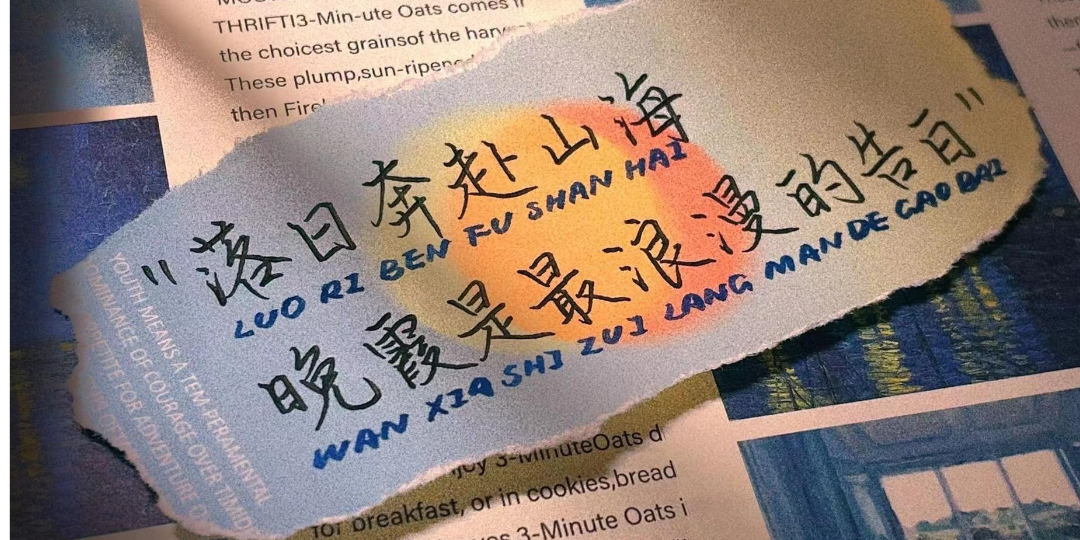 THRIFTI3-Min-ute Oats comes
the choicest grainsof the
These plump,sun-ripen
then
“落日奔赴山海
LUO RI BEN FU SHAN HAI
晚霞是最浪漫的告白”
WAN XIA SHI ZUI LANG MAN DE GAO BAI
YOUTH MEANS A TEM-PERAMENTAL
OMINANCE OF COURAGE OVER TIMID
PETITE FOR ADVENTURE O
joy 3-MinuteOats d
for breakfast, or in cookies,bread
3-Minute Oats i